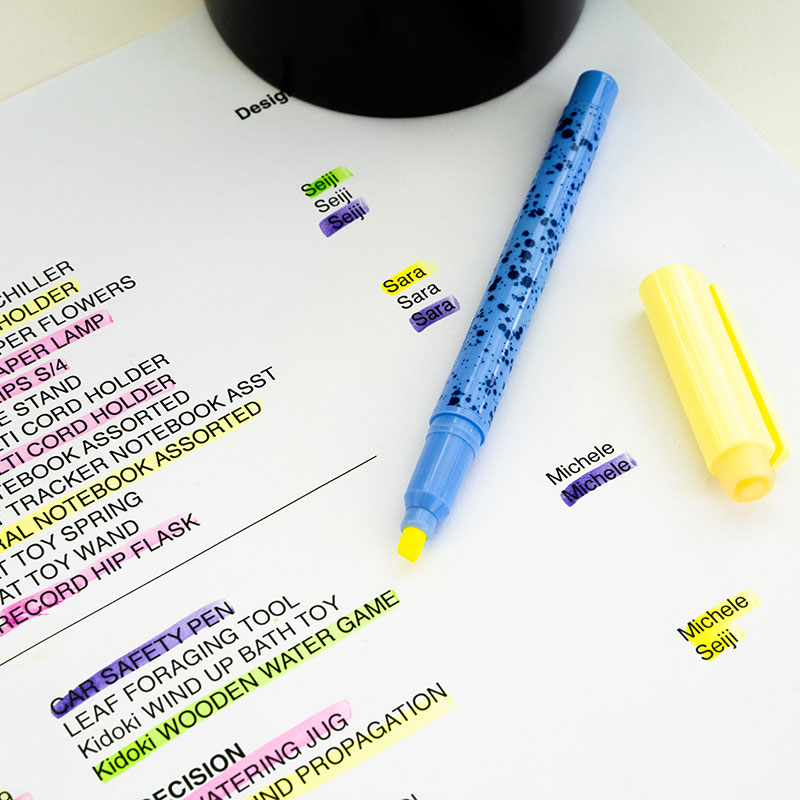 Design
Seiji
Seiji
Seiji
Sara
Sara
Sara
Michele
Michele
Michele
Seiji
CHILLER
HOLDER
PER FLOWERS
APER LAMP
IPS S/4
E STAND
TI CORD HOLDER
LTI CORD HOLDER
TEBOOK ASSORTED
T TRACKER NOTEBOOK ASST
RAL NOTEBOOK ASSORTED
T TOY SPRING
AT TOY WAND
RECORD HIP FLASK
CAR SAFETY PEN
LEAF FORAGING TOOL
Kidoki WIND UP BATH TOY
Kidoki WOODEN WATER GAME
DECISION
WATERING JUG
IND PROPAGATION